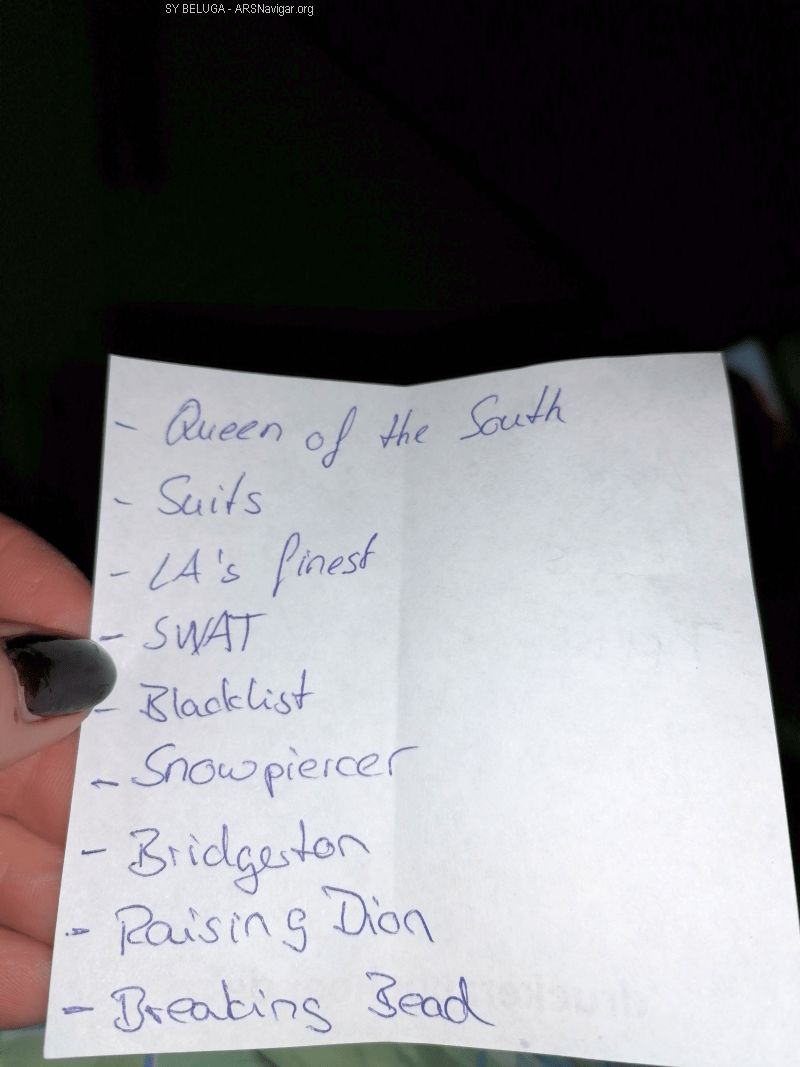 SY BELUGA - ARSNavigar.org
- Queen of the South
- Suits
- LA's finest
- SWAT
- Blacklist
- Snowpiercer
- Bridgeston
- Raising Dion
- Breaking Bead